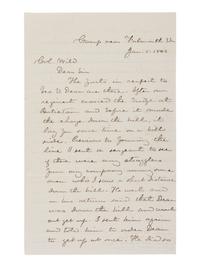 Camp near Falmouth Va
Jan. 5. 1863
Col. Wild
Dear Sir
The facts in respect to
Geo W Dean are these. After our
regiment crossed the bridge at
and before it made
the charge down the hill, it
lay for some time on a hill
side. Previous to forming the
line I sent a sergeant to see
if there were any stragglers
from my company among some
men who I saw a short distance
down the hill. He went and
on his return said that Dean
was down the hill and would
not get up. I sent him again
and told him to order Dean
to get up at once. He